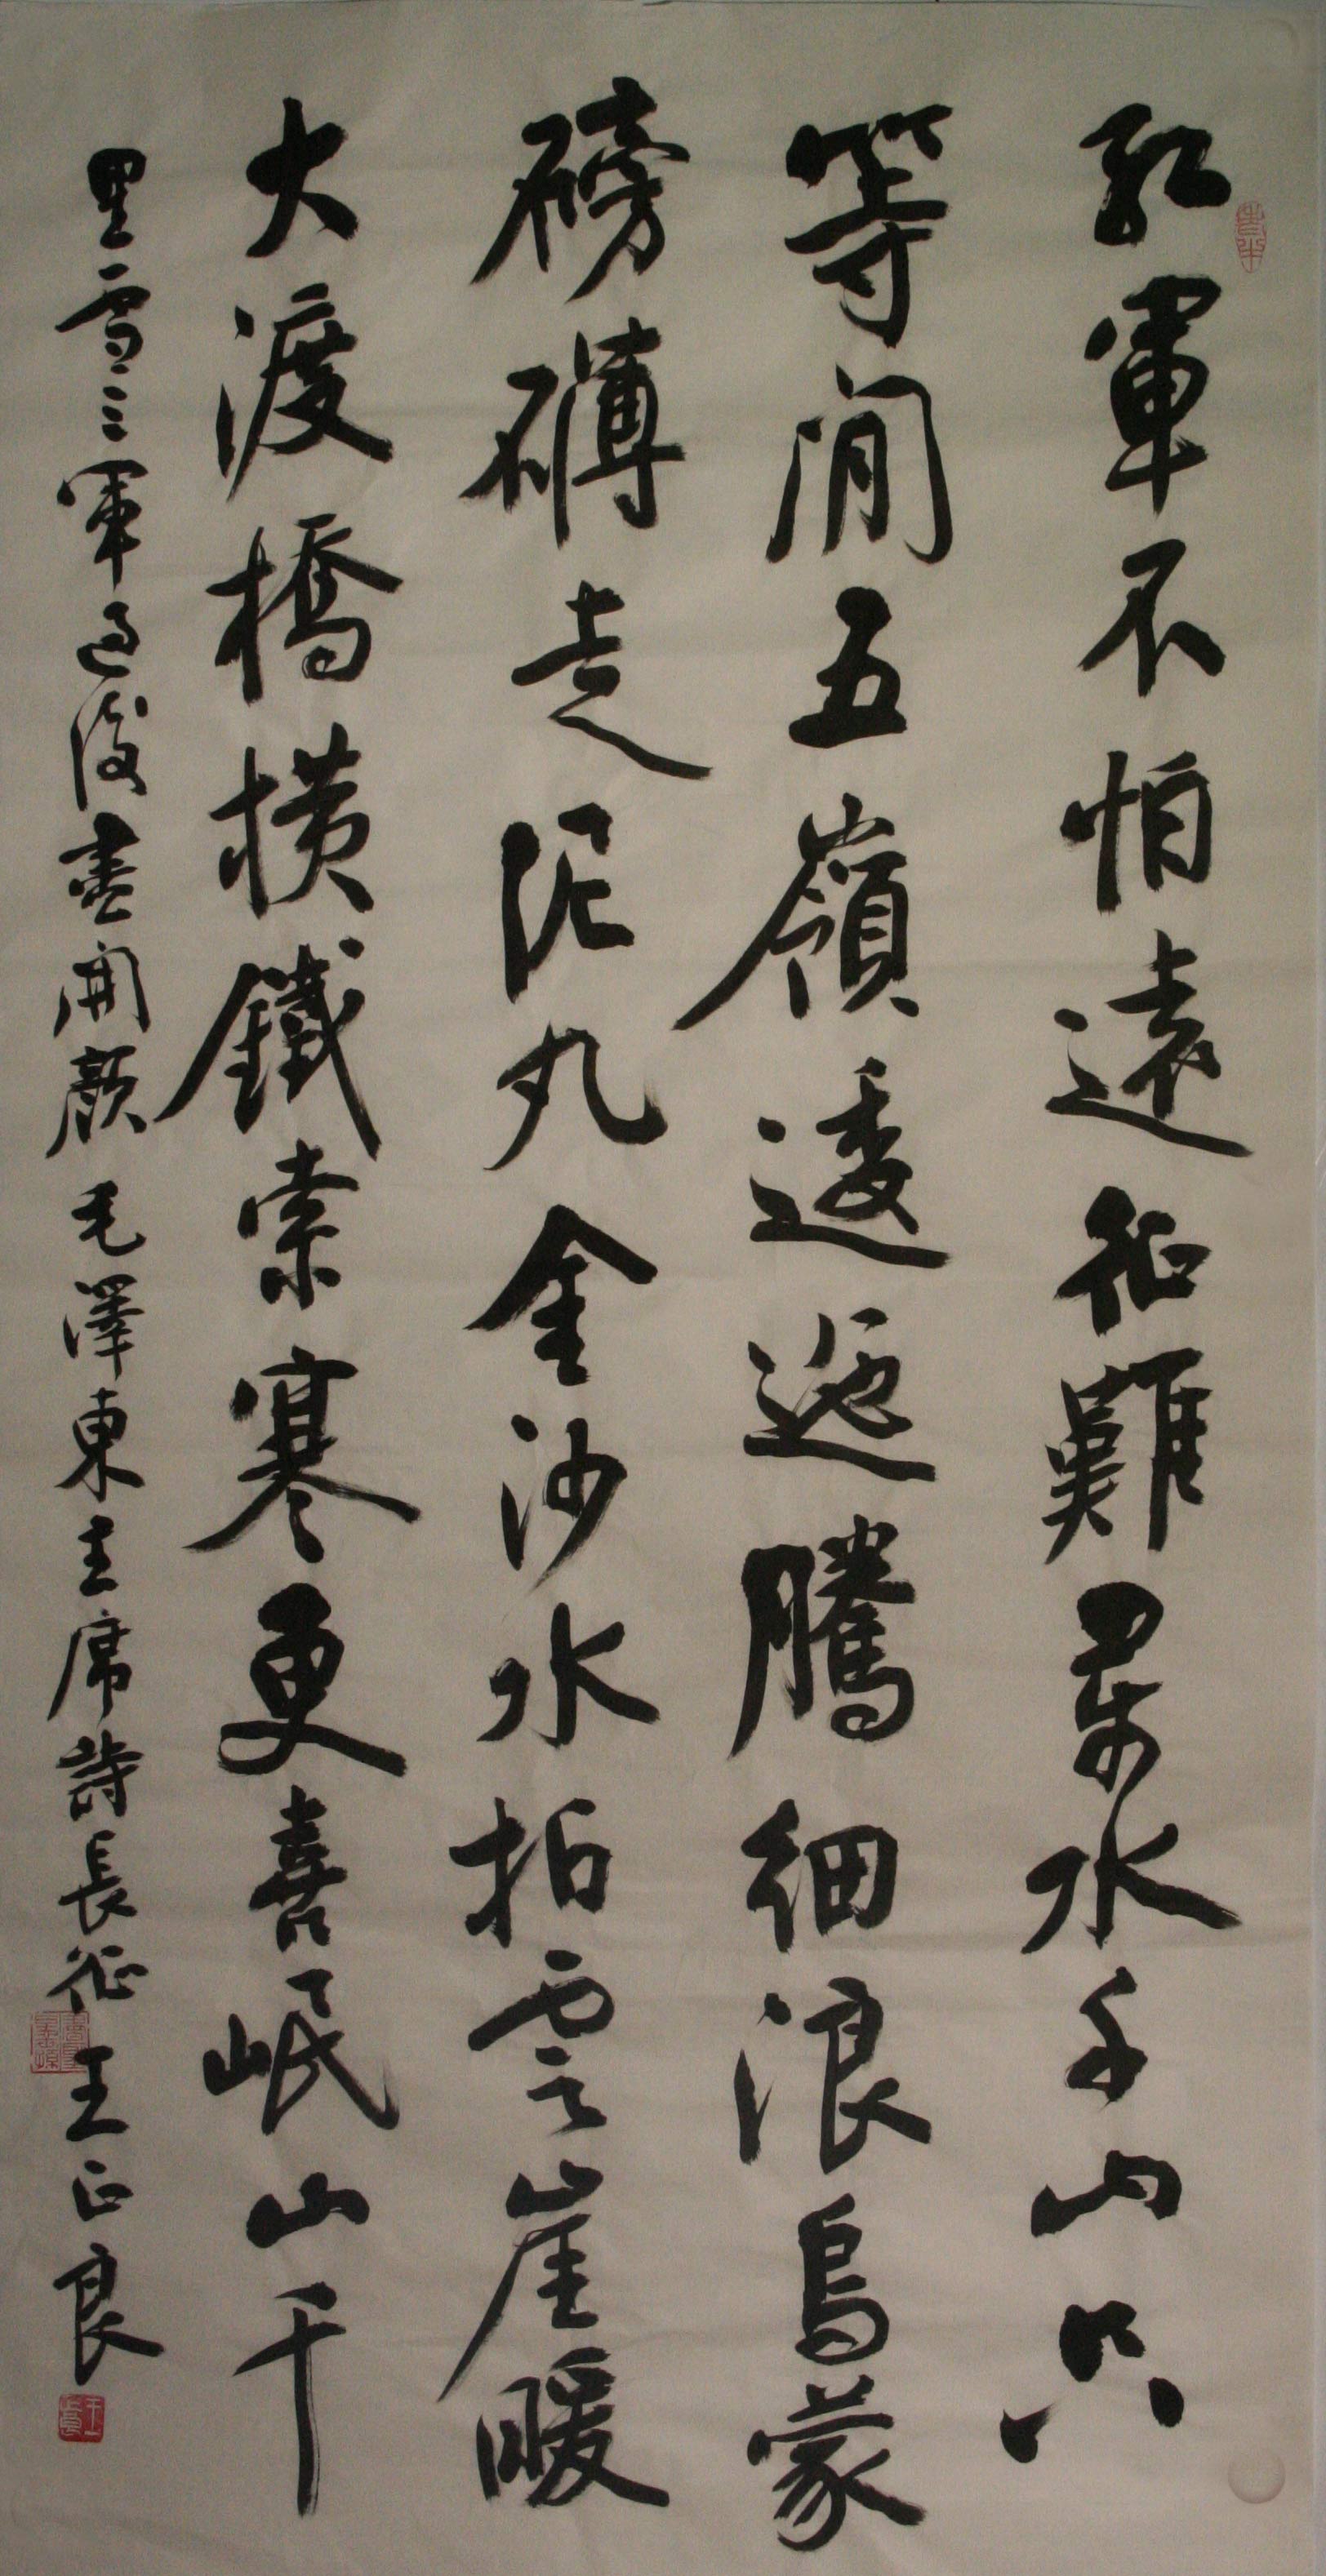 紅軍不怕遠征難萬水千山只
等閒五嶺逶迤騰細浪烏蒙
磅礴走泥丸金沙水拍雲崖暖
大渡橋橫鐵索寒更喜岷山千
里雪三軍過後盡開顏 毛澤東主席詩長征 王正良